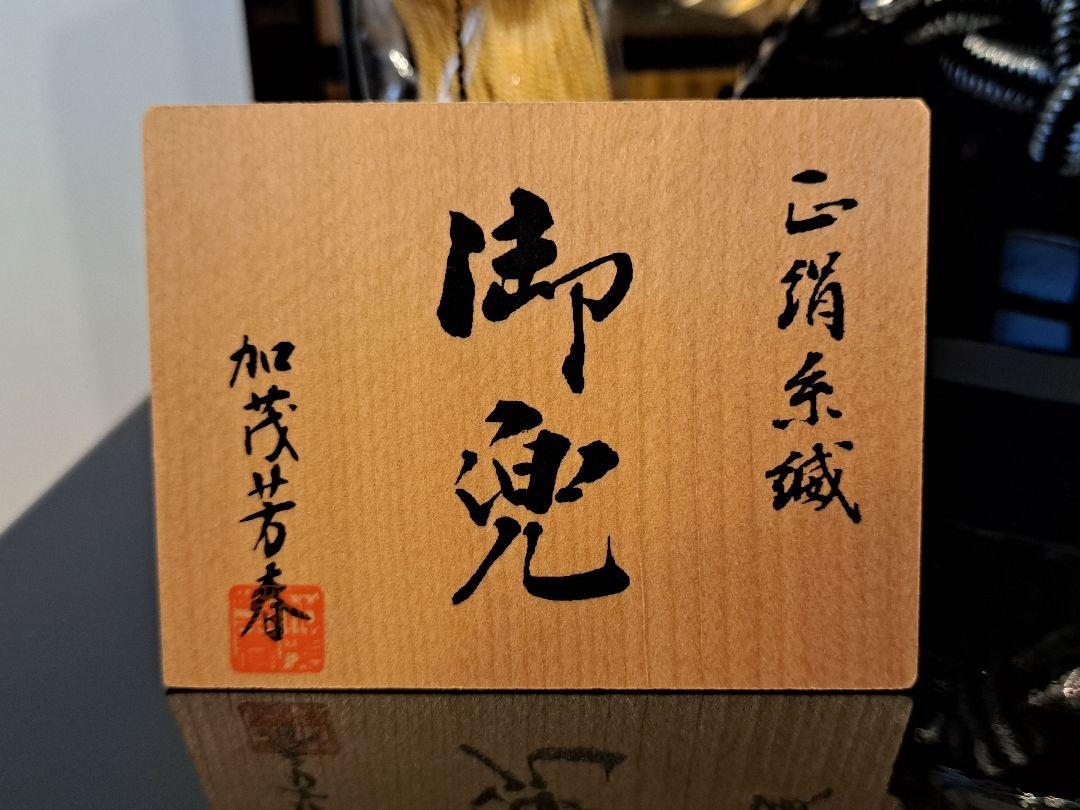 正絹糸縅
御兜
加茂芳春